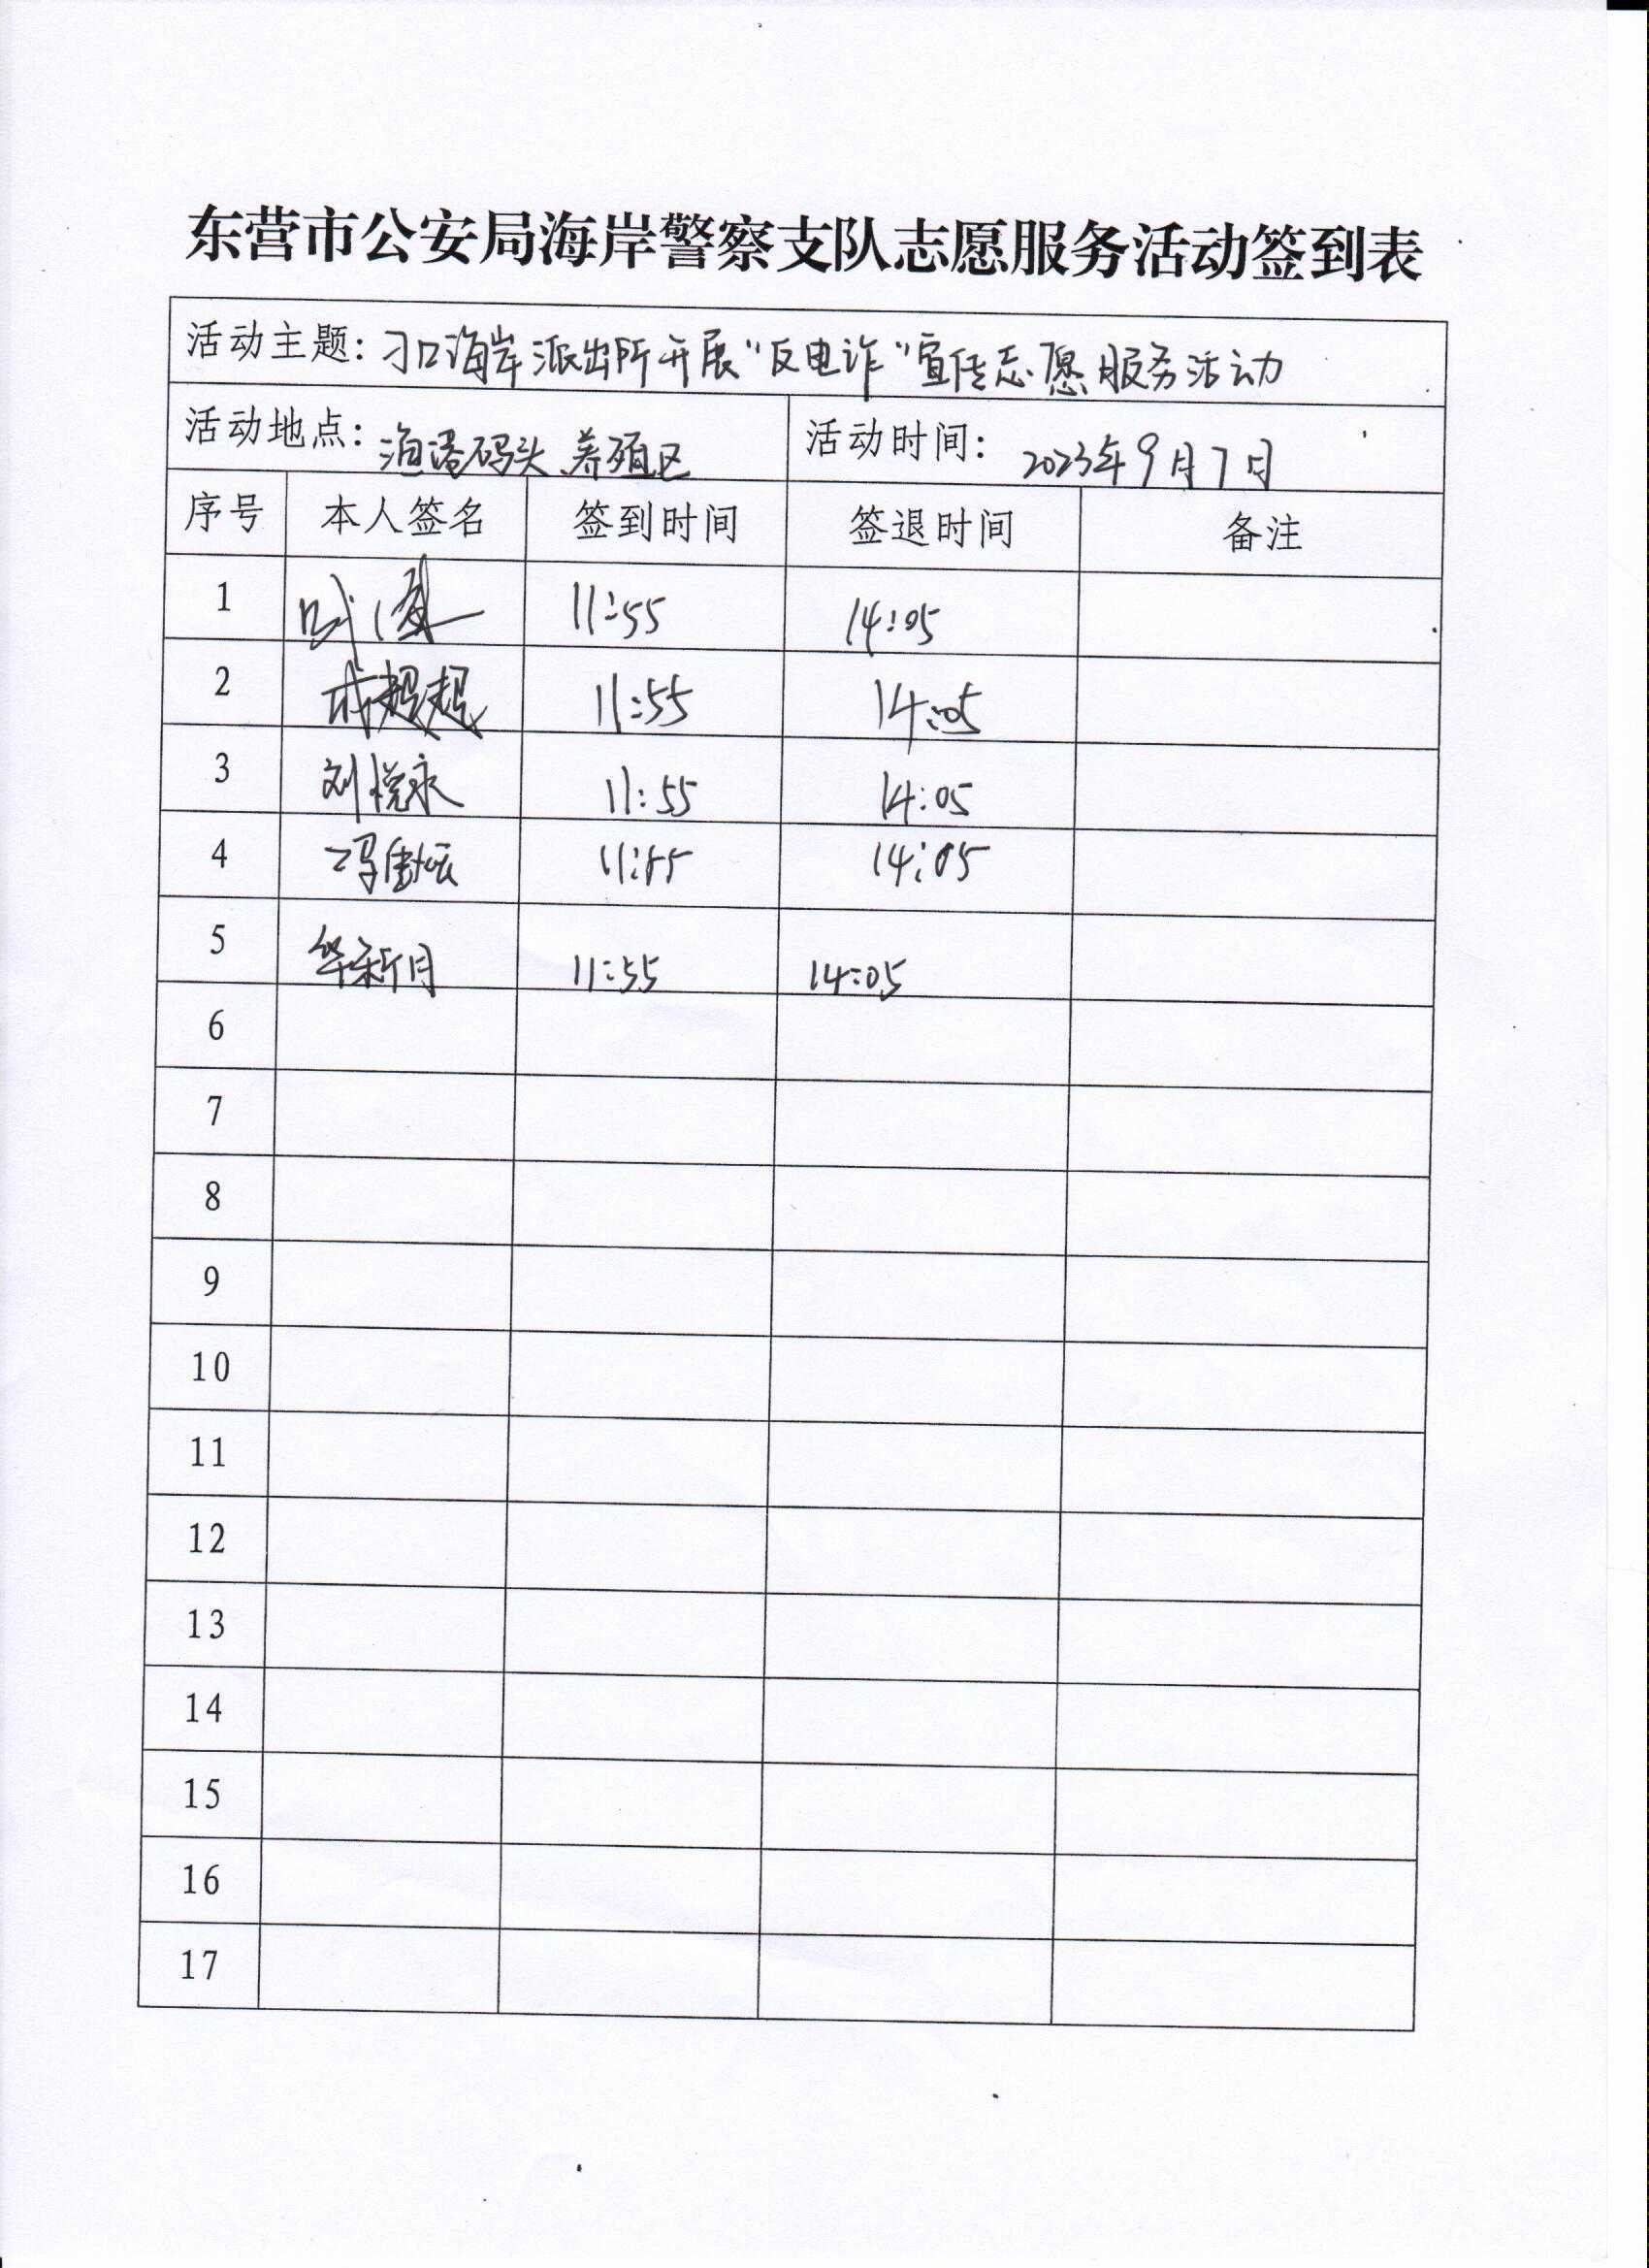 东营市公安局海岸警察支队志愿服务活动签到表
活动主题: 刁口海岸派出所开展“反电诈”宣传志愿服务活动
活动地点: 渔港码头、养殖区 活动时间: 2023年9月7日
序号 本人签名 签到时间 签退时间 备注
1 11:55 14:05
2 成超超 11:55 14:05
3 刘悦永 11:55 14:05
4 冯 11:55 14:05
5 华新月 11:55 14:05
6
7
8
9
10
11
12
13
14
15
16
17